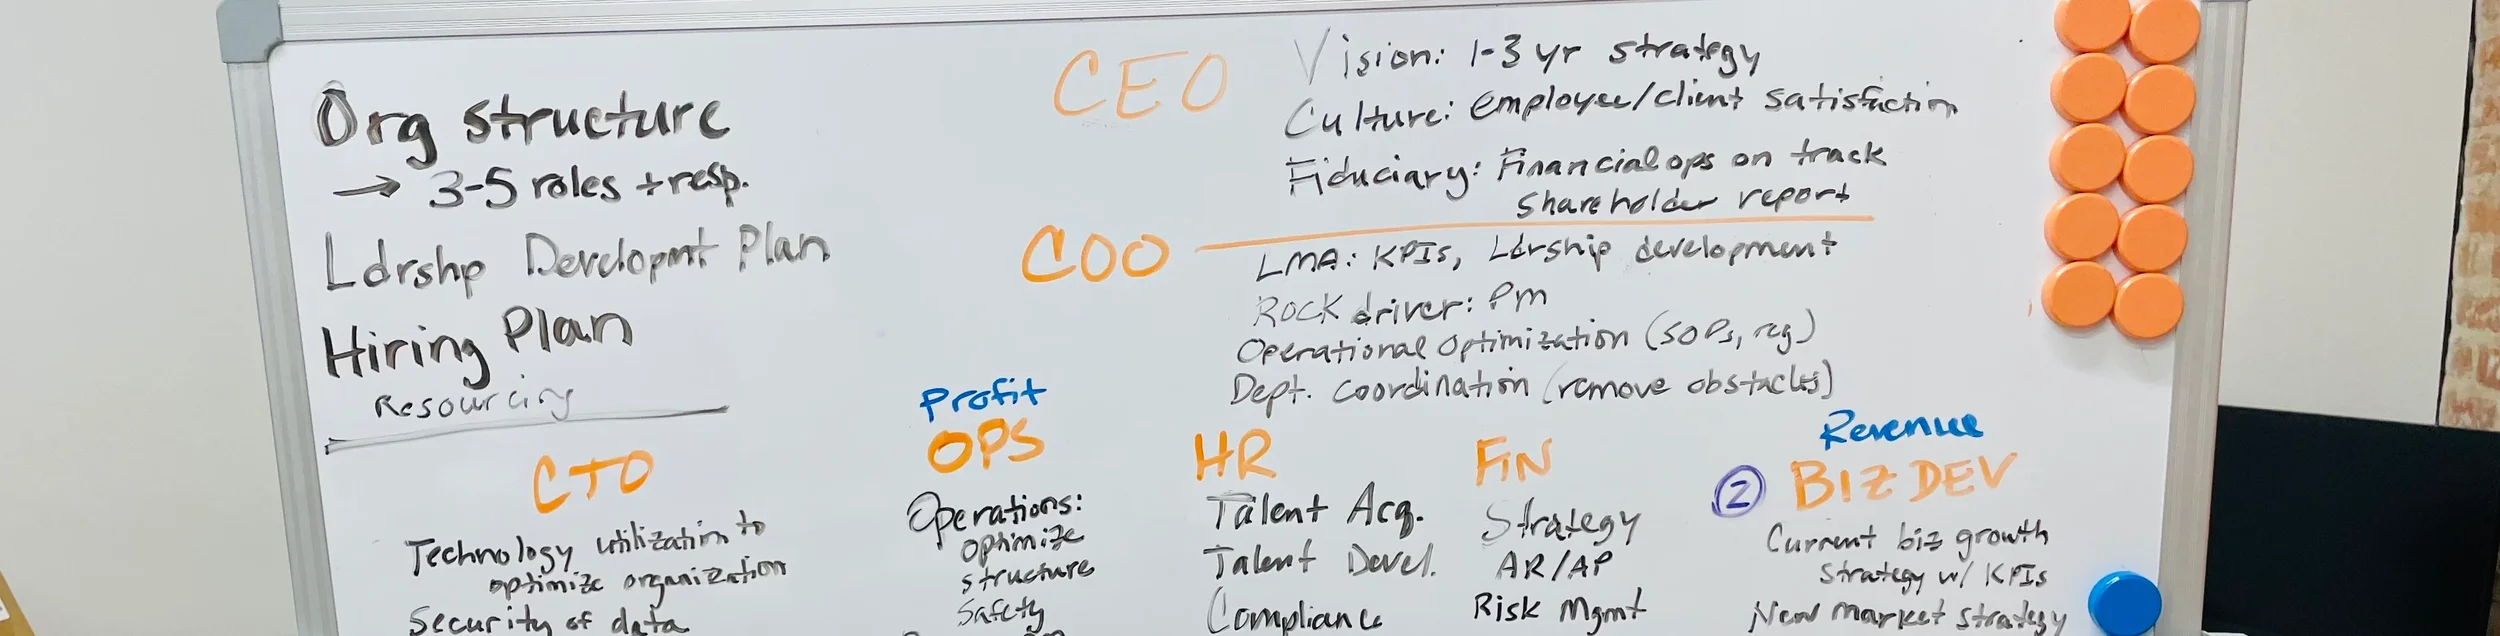 Org structure
→ 3-5 roles + resp.
Ldrshp Developmt Plan
Hiring Plan
Resourcing
CEO
Vision: 1-3 yr strategy
Culture: employee/client satisfaction
Fiduciary: Financial ops on track
shareholder report
COO
LMA: KPIs, Ldrship development
Rock driver: PM
Operational Optimization (SOPs, reg)
Dept. coordination (remove obstacles)
CTO
Technology utilization to
optimize organization
Security of data
Profit
OPS
Operations:
optimize
structure
Safety
HR
Talent Acq.
Talent Devel.
Compliance
FIN
Strategy
AR/AP
Risk Mgmt
Revenue
2 BIZ DEV
Current biz growth
strategy w/ KPIs
New market strategy